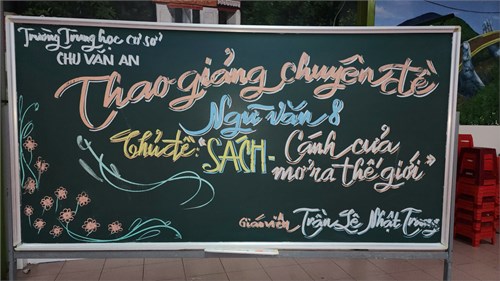 Trường Trung học cơ sở
CHU VĂN AN
Thao giảng chuyên đề
Ngữ văn 8
Chủ đề: "SÁCH - Cánh cửa
mở ra thế giới"
Giáo viên Trần Lê Nhật Trung